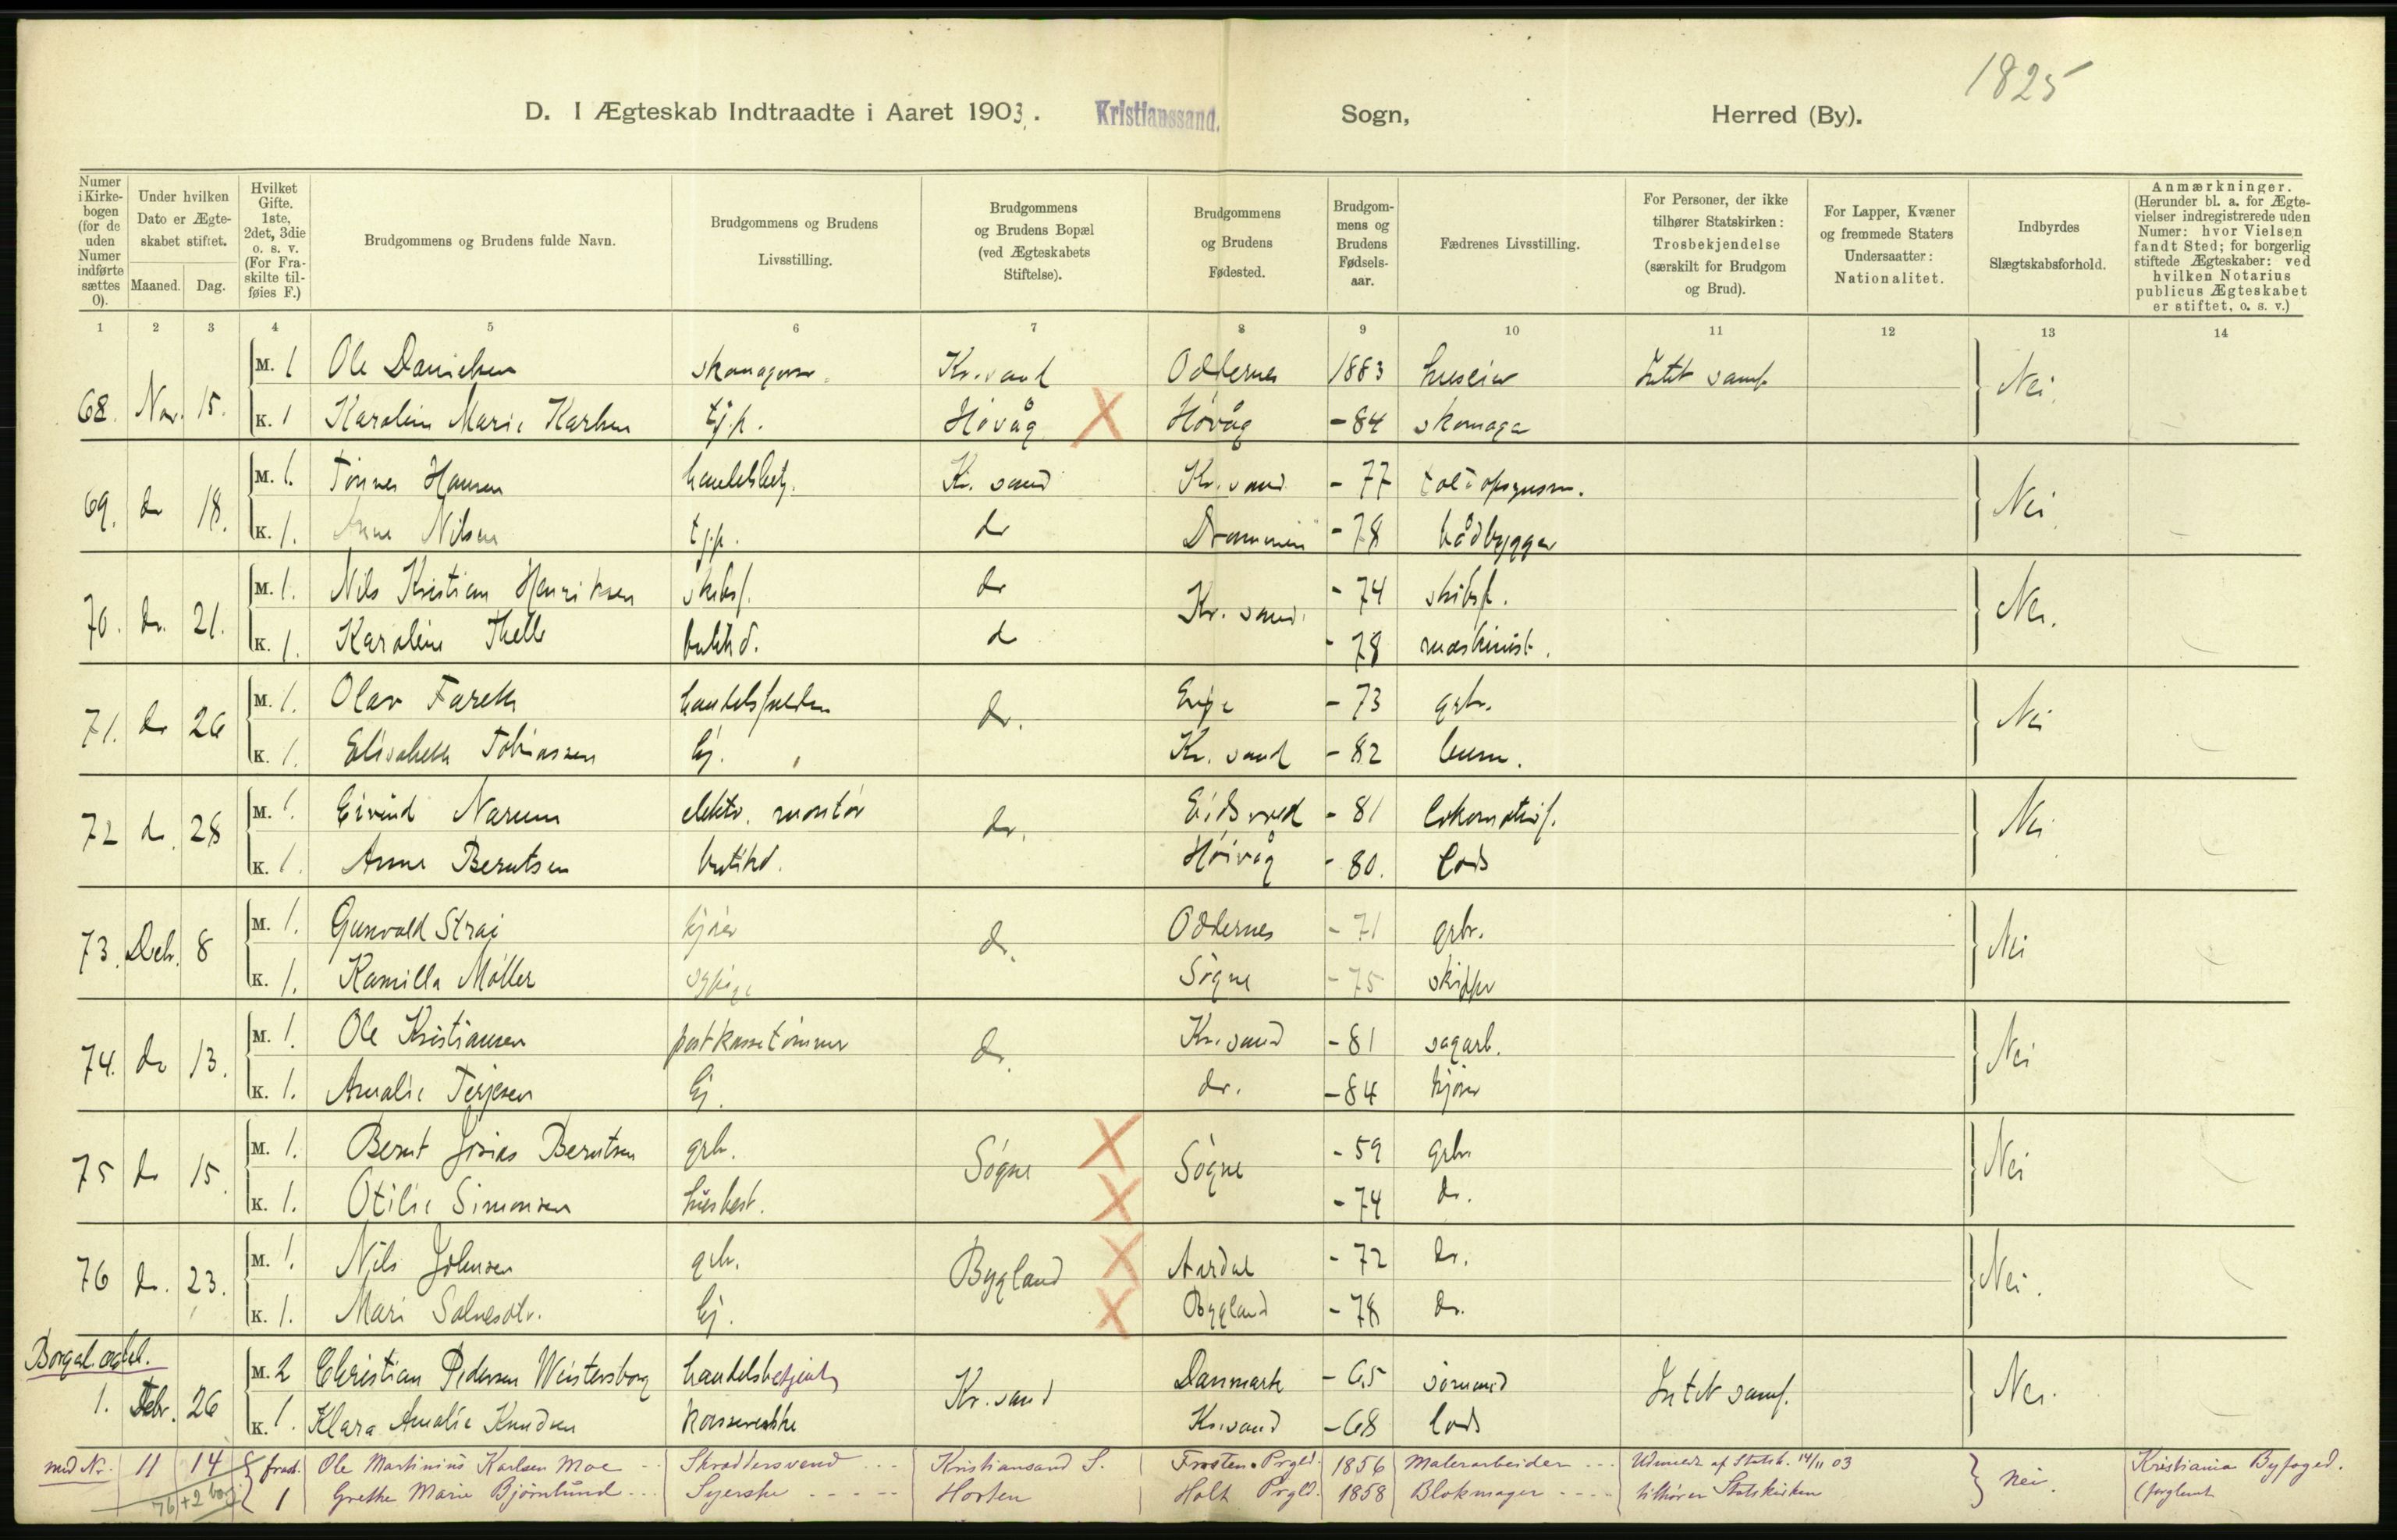 1825
D. I Ægteskab Indtraadte i Aaret 1903. Kristianssand. Sogn, Herred (By).
Numer i Kirkebogen (for de uden Numer indførte sættes 0). Under hvilken Dato er Ægteskabet stiftet. Maaned. Dag. Hvilket Gifte. 1ste, 2det, 3die o. s. v. (For Fraskilte tilføies F.) Brudgommens og Brudens fulde Navn. Brudgommens og Brudens Livsstilling. Brudgommens og Brudens Bopæl (ved Ægteskabets Stiftelse). Brudgommens og Brudens Fødested. Brudgommens og Brudens Fødselsaar. Fædrenes Livsstilling. For Personer, der ikke tilhører Statskirken: Trosbekjendelse (særskilt for Brudgom og Brud). For Lapper, Kvæner og fremmede Staters Undersaatter: Nationalitet. Indbyrdes Slægtskabsforhold. Anmærkninger. (Herunder bl. a. for Ægtevielser indregistrerede uden Numer: hvor Vielsen fandt Sted; for borgerlig stiftede Ægteskaber: ved hvilken Notarius publicus Ægteskabet er stiftet, o. s. v.)
1 2 3 4 5 6 7 8 9 10 11 12 13 14
68. Nov. 15. M. 1 Ole Danielsen Kr.sand Oddernes 1883 huseier Intet samf. Nei.
K. 1 Karoline Marie Karlsen tj.p. Høvåg Høvåg - 84 skomager
69. do 18. M. 1. Tønnes Hansen handelsbetj. Kr. sand Kr. sand - 77 Nei.
K. 1. Anne Nilsen tj.p. do Drammen - 78 bådbygger
70. do. 21. M. 1. Nils Kristian Henriksen skibsf. do Kr. sand. - 74 skibsf. Nei.
K. 1. Karoline Thelle butikd. do - 78 maskinist.
71. do 26 M. 1. Olav Fareth do. - 73 grbr. Nei
K. 1. Elisabeth Tobiassen Ej. Kr. sand - 82
72 do. 28 M. 1. Eivind Narum elektr. montør do. Eidsvold - 81 lokomotivf. Nei
K. 1. Anne Berntsen butikd. Høivåg - 80. lods
73. Debr. 8 M. 1. Gunvald Strai kjører do. Oddernes - 71 grbr. Nei
K. 1. Kamilla Møller sypige Søgne - 75 skipper
74. do 13. M. 1. Ole Kristiansen postkassetømmer do. Kr.sand - 81 sagarb. Nei
K. 1. Amalie Terjesen Ej. do. - 84 kjører
75 do 15. M. 1. Bernt Josias Berntsen grbr. Søgne Søgne - 59 grbr. Nei
K. 1. Otilie Simonsen husbest. - 74 do.
76 do. 23. M. 1. Nils Johnsen grbr. Bygland Aardal - 72 do. Nei.
K. 1. Mari Salvesdtr. Ej. Bygland - 78 do.
Borgel. ægtesk.
1. Febr. 26 M. 2 Christian Pedersen handelsbetjent Kr.sand Danmark - 65 sømand Intet samf. Nei.
K. 1. Klara Amalie Knudsen Kr.sand - 68 lods
med Nr. 11 14 frask. Ole Martinius Karlsen Moe Skræddersvend Kristiansand S. Frosten Prgld. 1856 Malerarbeider Udmeldt af Statsk. 14/11 03 Nei. Kristiania Byfoged.
76 + 2 borg. 1 Grethe Marie Bjørnlund Syerske Horten Holt Prgld. 1858 Blokmager tilhører Statskirken (forglemt